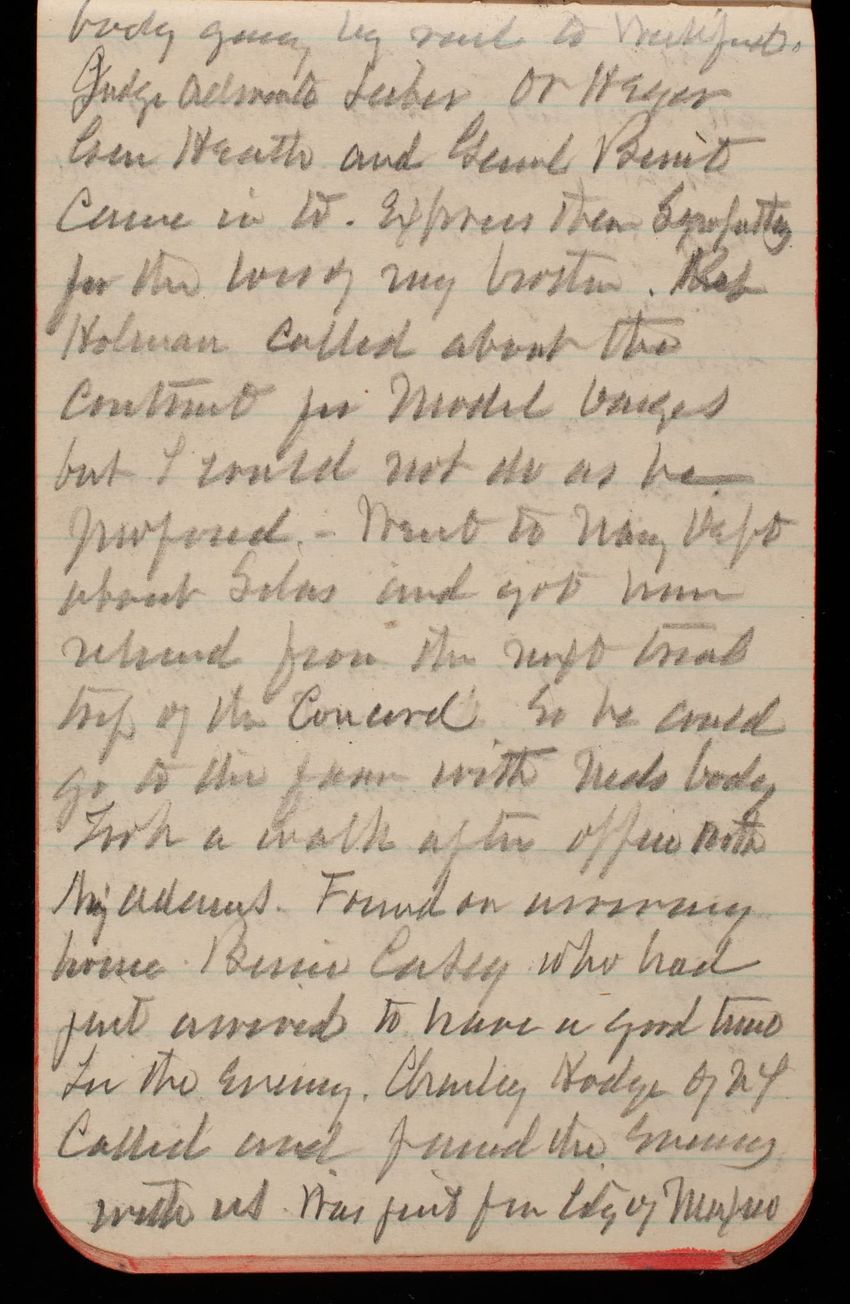 body going by rail to Westport.
Judge Advocate Lieber Dr Heger
Gen Heath and Genl Benét
Came in to. Express their Sympathy
for the loss of my brother. Rep
Holman called about the
Contract for Model barges
but I could not do as he
proposed. - Went to Navy Dept
about Silas and got him
relieved from the next trial
trip of the Concord So he could
go to the farm with Neds body
Took a walk after office with
Maj Adams. Found on arriving
home Bessie Casey who had
just arrived to have a good time
In the Evening. Charley Hodge of NY.
Called and passed the Evening
with us. Was just from City of Mexico